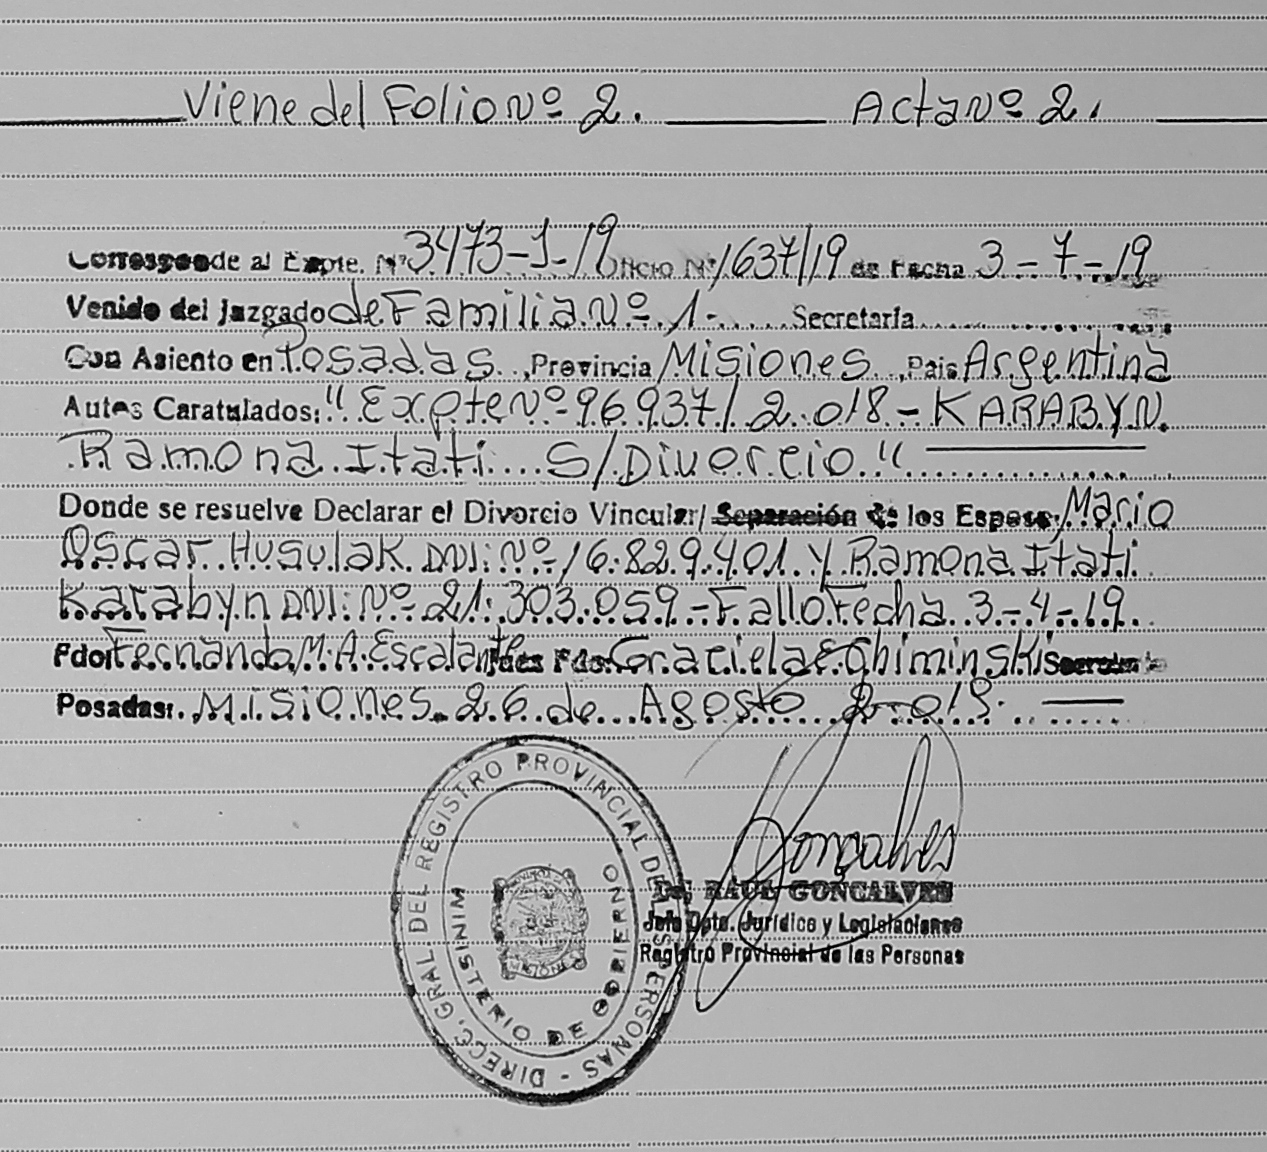 Viene del Folio Nº 2. Acta Nº 2.
Corresponde al Expte. Nº 3473-1-19 Oficio Nº 1637/19 de Fecha 3-7-19
Venido del Juzgado de Familia Nº 1- Secretaría
Con Asiento en Posadas, Provincia Misiones, Pais Argentina
Autos Caratulados: "Expte Nº 96.937/2.018 - KARABYN.
Ramona Itati S/Divorcio"
Donde se resuelve Declarar el Divorcio Vincular/ Separación de los Esposos, Mario
Oscar Husulak DNI: Nº 16.829.401. Y Ramona Itati
Karabyn DNI: Nº 21.303.059 - Fallo Fecha 3-4-19.
Fdo: Fernando M.A. Escalante Juez Fdo: Graciela E. Ghiminski Secretaria
Posadas: Misiones 26 de Agosto
DIRECC. GRAL DEL REGISTRO PROVINCIAL DE LAS PERSONAS -
MINISTERIO DE GOBIERNO
MISIONES
Gonçalves
RAÚL GONCALVES
Jefe Dpto. Jurídico y Legislaciones
Registro Provincial de las Personas